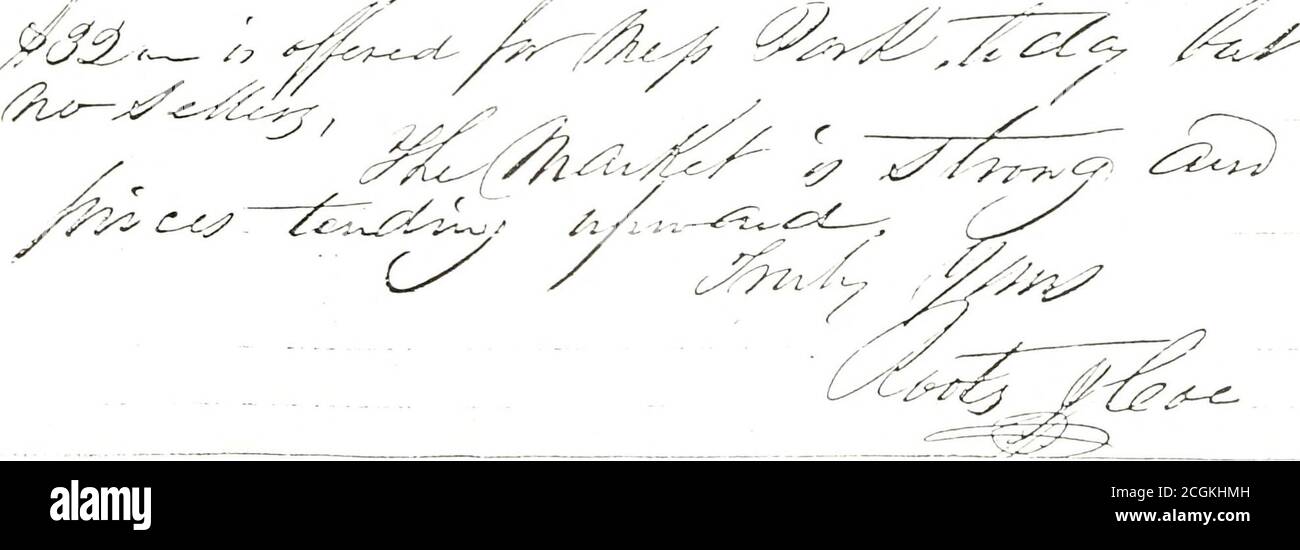 $32 is offered for Mess Pork today but
no Sellers,
The Market is strong and
prices tending upward.
Truly Yours
Roots & Coe
alamy
Image ID: 2CGKHMH
www.alamy.com